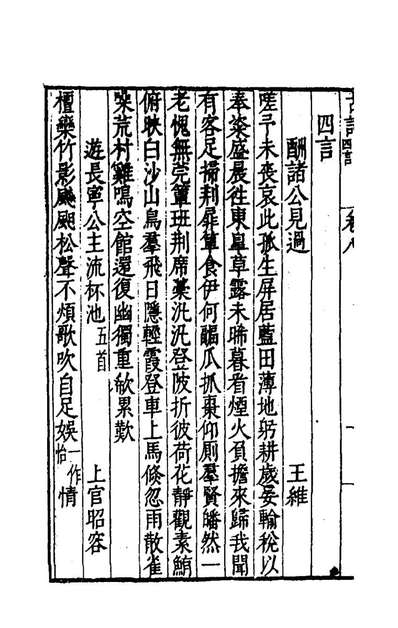 四言
酬諸公見過 王維
嗟予未喪哀此孤生屏居藍田薄地躬耕歲晏輸稅以
奉粢盛晨往東皐草露未晞暮看煙火負擔來歸我聞
有客足掃荆扉簞食伊何疈瓜抓棗仰厠羣賢皤然一
老愧無莞簟班荆席藁汎汎登陂折彼荷花靜觀素鮪
俯映白沙山鳥羣飛日隱輕霞登車上馬倐忽雨散雀
噪荒村雞鳴空館還復幽獨重欷累歎
遊長寧公主流杯池五首 上官昭容
檀欒竹影飈松聲不煩歌吹自足娛怡一作情